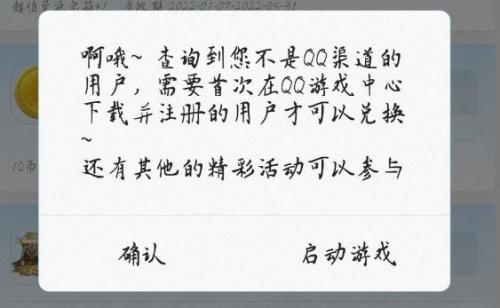 超值景源宝箱*1 有效期 2022-01-07-2022-03-31
啊哦~ 查询到您不是QQ渠道的
用户，需要首次在QQ游戏中心
下载并注册的用户才可以兑换
~
还有其他的精彩活动可以参与
1Q币
确认 启动游戏